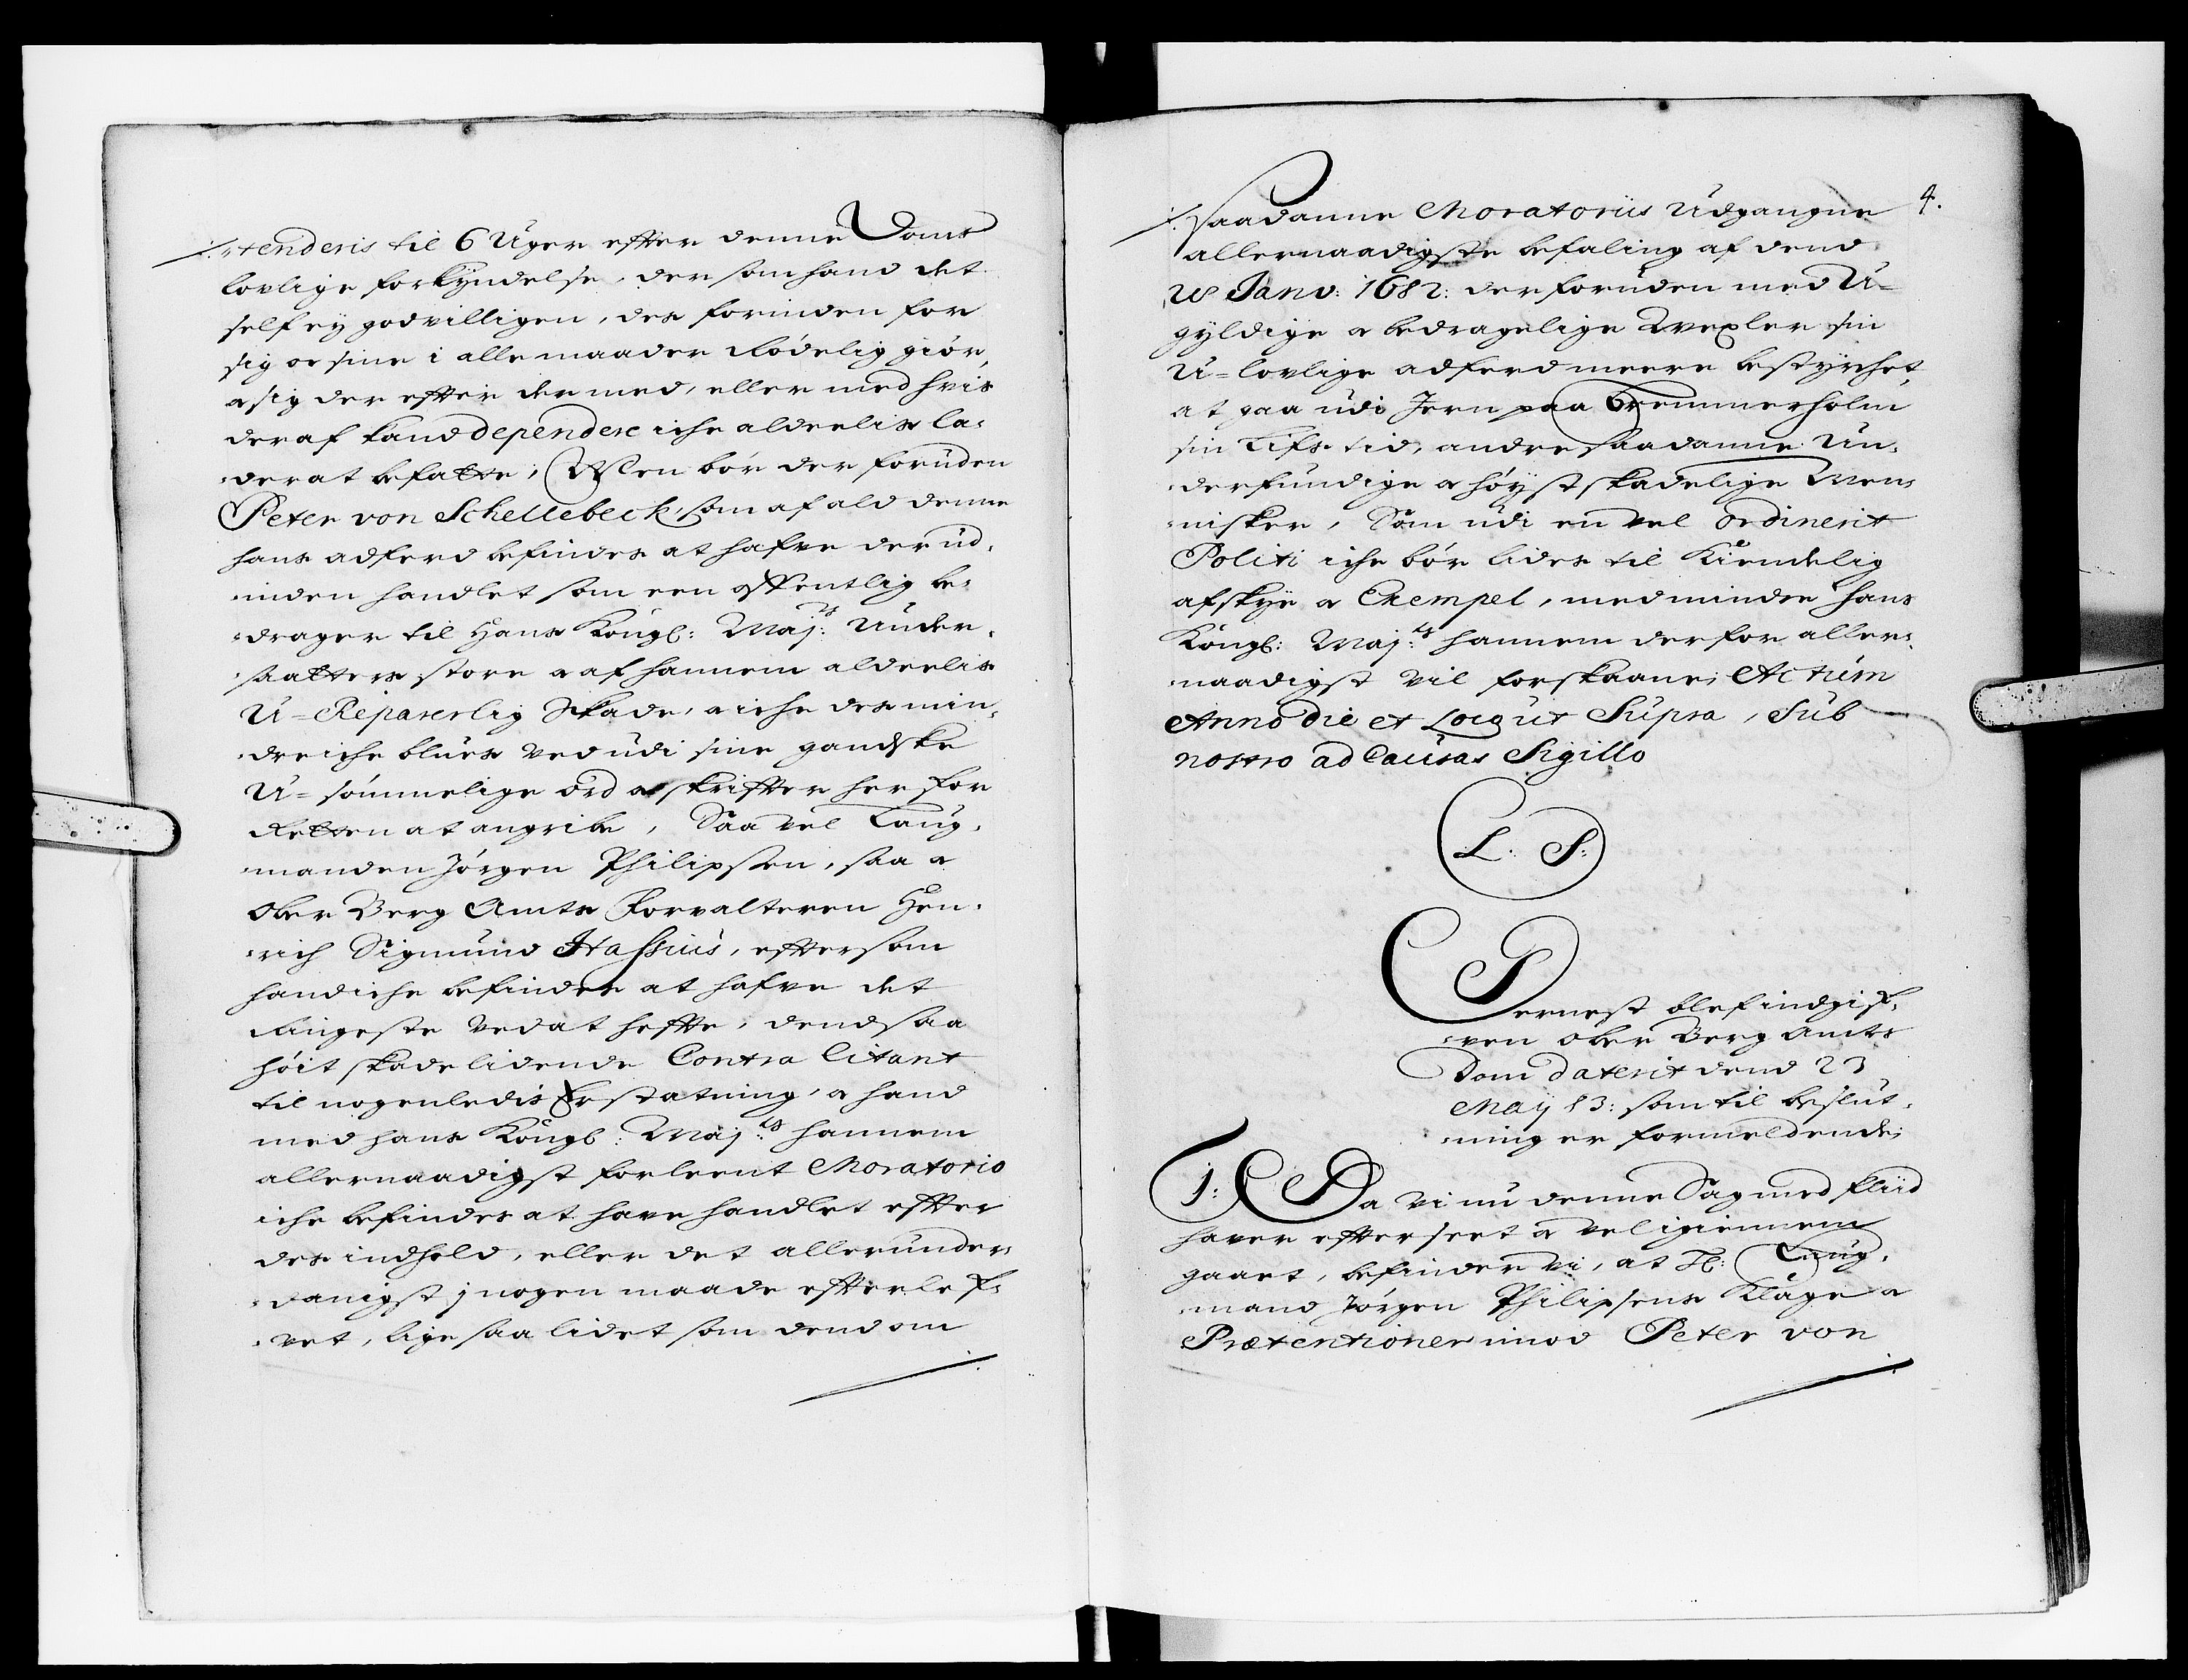 :/: tenderis til 6 Uger effter denne Doms
lovlige forkyndelse, der som hand det
self ey godvilligen, des forinden for
sig oc sine i alle maader Rødelig giør,
a sig der effter der med, eller med hvis
der af kand dependere iche aldeelis la-
der at befatte; Men bør der foruden
Peter von Schellebeck, som af ald denne
hans adferd befindes at hafve der ud-
inden handlet som een offentlig be-
drager til Hans Kongl: Maj:ts Under-
saatters store a af hannem aldeelis
U=Reparerlig Skade, a iche des min-
dre iche blues ved udi sine gandske
U=sømmelige Ord a skriffter her for
Retten at angribe, Saa vel Laug-
manden Jørgen Philipsen, saa a
Ober Berg Amts Forvalteren Hen-
rich Sigmund Hassius, effter som
hand iche befindes at hafve det
Ringeste ved at heffte, dend saa
høit skadelidende Contra Citant
til nogenledis Erstatning, a hand
med hans Kongl: Maj:ts hannem
allernaadigst forleent Moratorio
iche befindes at have handlet effter
des indhold, eller det allerunder-
danigst j nogen maade effterlef-
vet, lige saa lidet som dend om
4.
:/: saadanne Moratoriis Udgangne
allernaadigste befaling af dend
28 Janv: 1682: der foruden med U-
gyldige a bedragelige Wexler sin
U=lovlige adferd meere bestyrchet,
at gaa udi Jern paa Bremmerholm
sin Lifs tid, andre saadanne Un-
derfundige a høyst skadelige Men-
nisker, Som udi en vel ordinerit
Politi iche bør lides til Kiendelig
afskye a Exempel, med mindre hans
Kongl: Maj:ts hannem der for aller-
naadigst vil forskaane; Actum
Anno die et Loco ut Supra, Sub
nostro ad Causas Sigillo
L. S:
Dernest blef indgif-
ven Ober Berg Amts
Dom daterit dend 23
Maij 83: som til beslut-
ning er formeldende;
1: Da vi nu denne Sag med fliid
haver effterseet a vel igiennem
gaaet, befinder vi, at H: Laug-
mand Jørgen Philipsens Klage a
Prætentioner imod Peter von